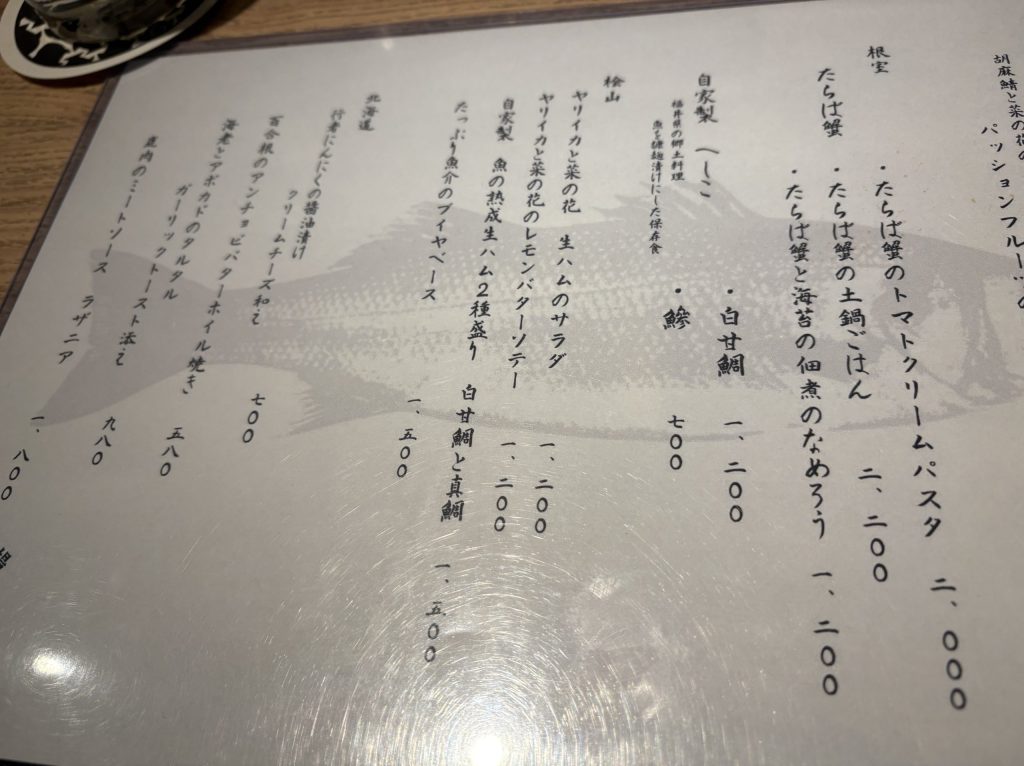 胡麻鯖と菜の花の
パッションフルーツの
根室
たらば蟹 ・たらば蟹のトマトクリームパスタ 二、〇〇〇
・たらば蟹の土鍋ごはん 二、二〇〇
・たらば蟹と海苔の佃煮のなめろう 一、二〇〇
自家製 へしこ ・白甘鯛 一、二〇〇
福井県の郷土料理
魚を糠麹漬けにした保存食 ・鯵 七〇〇
桧山
ヤリイカと菜の花 生ハムのサラダ 一、二〇〇
ヤリイカと菜の花のレモンバターソテー 一、二〇〇
自家製 魚の熟成生ハム2種盛り 白甘鯛と真鯛 一、五〇〇
たっぷり魚介のブイヤベース 一、五〇〇
北海道
行者にんにくの醤油漬け
クリームチーズ和え 七〇〇
百合根のアンチョビバターホイル焼き 五八〇
海老とアボカドのタルタル
ガーリックトースト添え 九八〇
鹿肉のミートソース ラザニア 一、八〇〇